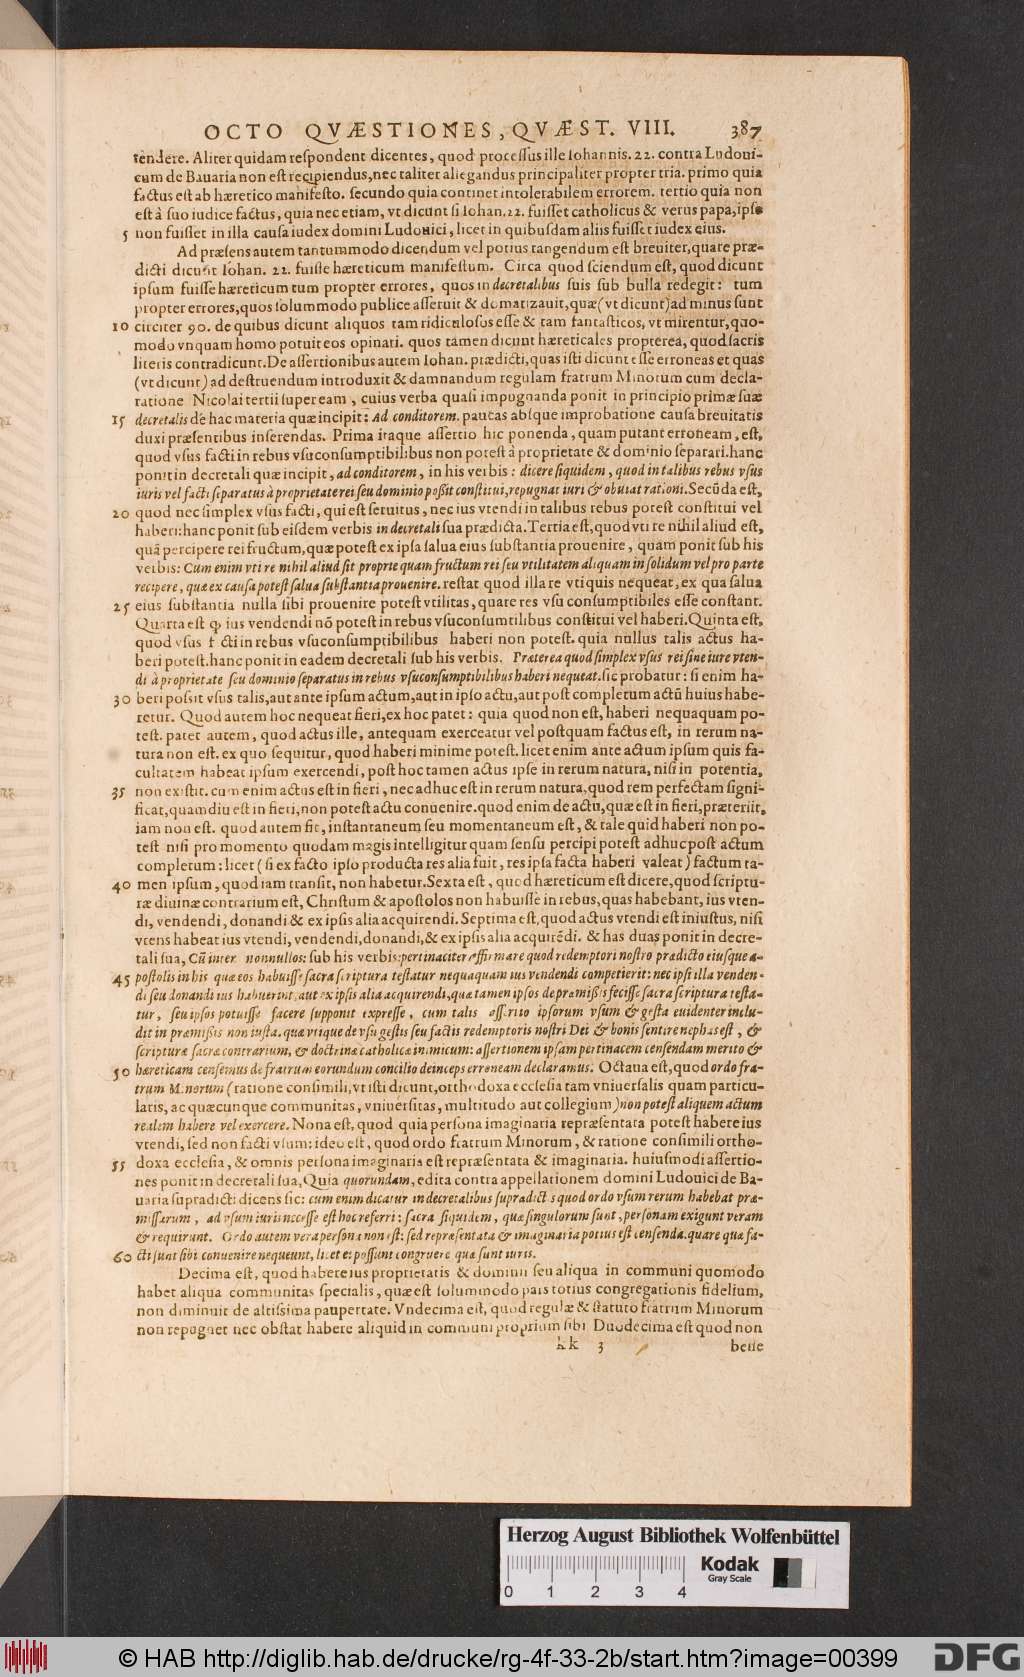 OCTO QVÆSTIONES, QVÆST. VIII. 387
tendere. Aliter quidam respondent dicentes, quod processus ille Iohannis. 22. contra Ludoui-
cum de Bauaria non est recipiendus, nec taliter allegandus principaliter propter tria. primo quia
factus est ab hæretico manifesto. secundo quia continet intolerabilem errorem. tertio quia non
est à suo iudice factus, quia nec etiam, vt dicunt si Iohan. 22. fuisset catholicus & verus papa, ipse
5 non fuisset in illa causa iudex domini Ludouici, licet in quibusdam aliis fuisset iudex eius.
Ad præsens autem tantummodo dicendum vel potius tangendum est breuiter, quare præ-
dicti dicunt Iohan. 22. fuisse hæreticum manifestum. Circa quod sciendum est, quod dicunt
ipsum fuisse hæreticum tum propter errores, quos in decretalibus suis sub bulla redegit: tum
propter errores, quos solummodo publice asseruit & domatizauit, quæ (vt dicunt) ad minus sunt
10 circiter 90. de quibus dicunt aliquos tam ridiculosos esse & tam fantasticos, vt mirentur, quo-
modo vnquam homo potuit eos opinari. quos tamen dicunt hæreticales propterea, quod sacris
literis contradicunt. De assertionibus autem Iohan. prædicti, quas isti dicunt esse erroneas et quas
(vt dicunt) ad destruendum introduxit & damnandum regulam fratrum Minorum cum decla-
ratione Nicolai tertii super eam, cuius verba quasi impugnanda ponit in principio primæ suæ
15 decretalis de hac materia quæ incipit: Ad conditorem. paucas absque improbatione causa breuitatis
duxi præsentibus inserendas. Prima itaque assertio hic ponenda, quam putant erroneam, est,
quod vsus facti in rebus vsu consumptibilibus non potest à proprietate & dominio separari. hanc
ponit in decretali quæ incipit, ad conditorem, in his verbis: dicere siquidem, quod in talibus rebus vsus
iuris vel facti separatus à proprietate rei seu dominio possit constitui, repugnat iuri & obuiat rationi. Secūda est,
20 quod nec simplex vsus facti, qui est seruitus, nec ius vtendi in talibus rebus potest constitui vel
haberi: hanc ponit sub eisdem verbis in decretali sua prædicta. Tertia est, quod vti re nihil aliud est,
quā percipere rei fructum, quæ potest ex ipsa salua eius substantia prouenire, quam ponit sub his
verbis: Cum enim vti re nihil aliud sit proprie quam fructum rei seu vtilitatem aliquam in solidum vel pro parte
recipere, quæ ex causa potest salua substantia prouenire. restat quod illa re vti quis nequeat, ex qua salua
25 eius substantia nulla sibi prouenire potest vtilitas, quare res vsu consumptibiles esse constant.
Quarta est ꝙ ius vendendi nō potest in rebus vsu consumtilibus constitui vel haberi. Quinta est,
quod vsus f cti in rebus vsu consumptibilibus haberi non potest. quia nullus talis actus ha-
beri potest. hanc ponit in eadem decretali sub his verbis. Præterea quod simplex vsus rei sine iure vten-
di à proprietate seu dominio separatus in rebus vsu consumptibilibus haberi nequeat. sic probatur: si enim ha-
30 beri possit vsus talis, aut ante ipsum actum, aut in ipso actu, aut post completum actū huius habe-
retur. Quod autem hoc nequeat fieri, ex hoc patet: quia quod non est, haberi nequaquam po-
test. patet autem, quod actus ille, antequam exerceatur vel postquam factus est, in rerum na-
tura non est. ex quo sequitur, quod haberi minime potest. licet enim ante actum ipsum quis fa-
cultatem habeat ipsum exercendi, post hoc tamen actus ipse in rerum natura, nisi in potentia,
35 non existit. cum enim actus est in fieri, nec adhuc est in rerum natura, quod rem perfectam signi-
ficat, quamdiu est in fieri, non potest actu conuenire. quod enim de actu, quæ est in fieri, præteriit,
iam non est. quod autem fit, instantaneum seu momentaneum est, & tale quid haberi non po-
test nisi pro momento quodam magis intelligitur quam sensu percipi potest adhuc post actum
completum: licet (si ex facto ipso producta res alia fuit, res ipsa facta haberi valeat) factum ta-
40 men ipsum, quod iam transit, non habetur. Sexta est, quod hæreticum est dicere, quod scriptu-
ræ diuinæ contrarium est, Christum & apostolos non habuisse in rebus, quas habebant, ius vten-
di, vendendi, donandi & ex ipsis alia acquirendi. Septima est, quod actus vtendi est iniustus, nisi
vtens habeat ius vtendi, vendendi, donandi, & ex ipsis alia acquirēdi. & has duas ponit in decre-
tali sua, Cū inter nonnullos: sub his verbis: pertinaciter affirmare quod redemptori nostro prædicto eiusque a-
45 postolis in his quæ eos habuisse sacra scriptura testatur nequaquam ius vendendi competierit: nec ipsi illa venden-
di seu donandi ius habuerint, aut ex ipsis alia acquirendi, quæ tamen ipsos de præmissis fecisse sacra scriptura testa-
tur, seu ipsos potuisse facere supponit expresse, cum talis assertio ipsorum vsum & gesta euidenter inclu-
dit in præmissis non iusta. quæ vtique de vsu gestis seu factis redemptoris nostri Dei & bonis sentire nephas est, &
scripturæ sacræ contrarium, & doctrinæ catholicæ inimicum: assertionem ipsam pertinacem censendam merito &
50 hæreticam censemus de fratrum eorundum concilio deinceps erroneam declaramus. Octaua est, quod ordo fra-
trum Minorum (ratione consimili, vt isti dicunt, orthodoxa ecclesia tam vniuersalis quam particu-
laris, ac quæcunque communitas, vniuersitas, multitudo aut collegium) non potest aliquem actum
realem habere vel exercere. Nona est, quod quia persona imaginaria repræsentata potest habere ius
vtendi, sed non facti vsum: ideo est, quod ordo fratrum Minorum, & ratione consimili ortho-
55 doxa ecclesia, & omnis persona imaginaria est repræsentata & imaginaria. huiusmodi assertio-
nes ponit in decretali sua, Quia quorundam, edita contra appellationem domini Ludouici de Ba-
uaria supradicti dicens sic: cum enim dicatur in decretalibus supradictis quod ordo vsum rerum habebat præ-
missarum, ad vsum iuris necesse est hoc referri: facta siquidem, quæ singulorum sunt, personam exigunt veram
& requirunt. Ordo autem vera persona non est: sed repræsentata & imaginaria potius est censenda. quare quæ fa-
60 cti sunt sibi conuenire nequeunt, licet ei possunt congruere quæ sunt iuris.
Decima est, quod habere ius proprietatis & dominii seu aliqua in communi quomodo
habet aliqua communitas specialis, quæ est solummodo pars totius congregationis fidelium,
non diminuit de altissima paupertate. Vndecima est, quod regulæ & statuto fratrum Minorum
non repugnet nec obstat habere aliquid in communi proprium sibi Duodecima est quod non
kk 3 bene
Herzog August Bibliothek Wolfenbüttel
Kodak
Gray Scale
0 1 2 3 4
© HAB http://diglib.hab.de/drucke/rg-4f-33-2b/start.htm?image=00399
DFG